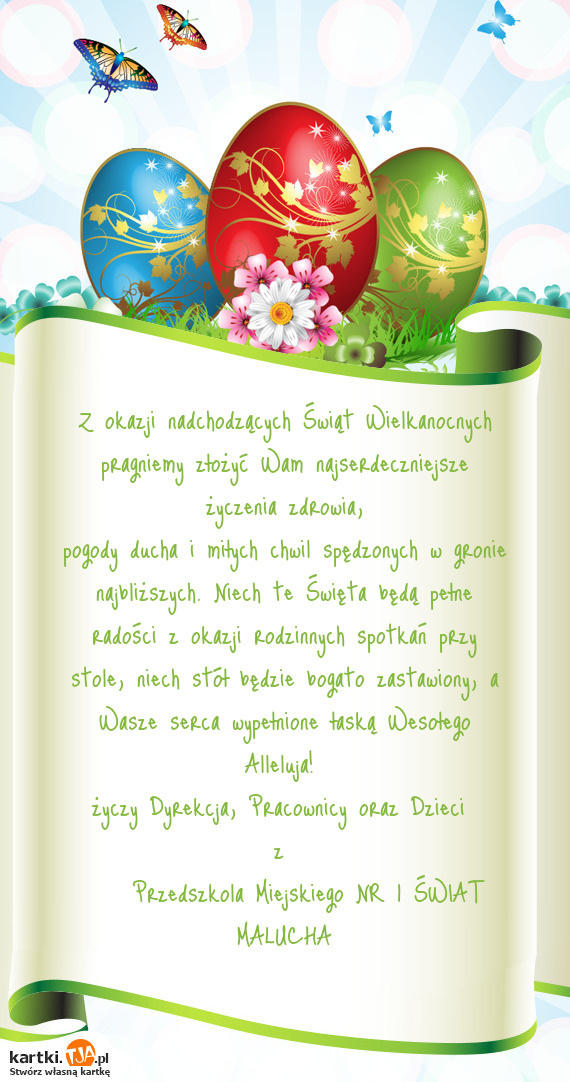 Z okazji nadchodzących Świąt Wielkanocnych
pragniemy złożyć Wam najserdeczniejsze
życzenia zdrowia,
pogody ducha i miłych chwil spędzonych w gronie
najbliższych. Niech te Święta będą pełne
radości z okazji rodzinnych spotkań przy
stole, niech stół będzie bogato zastawiony, a
Wasze serca wypełnione łaską Wesołego
Alleluja!
życzy Dyrekcja, Pracownicy oraz Dzieci
z
Przedszkola Miejskiego NR 1 ŚWIAT
MALUCHA
kartki.TJA.pl
Stwórz własną kartkę